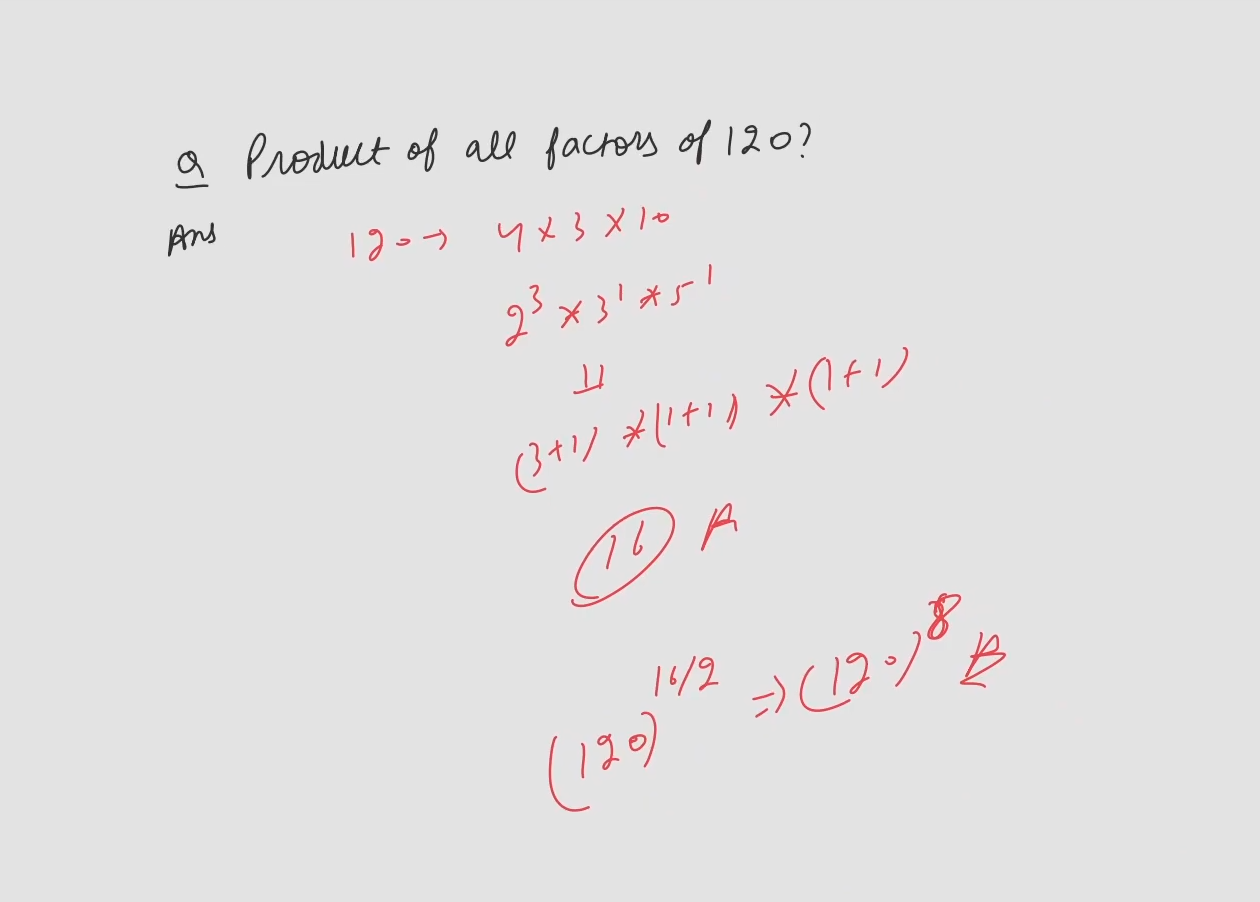 Q Product of all factors of 120?
Ans 120 → 4 × 3 × 10
2³ * 3¹ * 5¹
⇓
(3+1) * (1+1) * (1+1)
16 A
(120)^16/2 ⇒ (120)^8 B